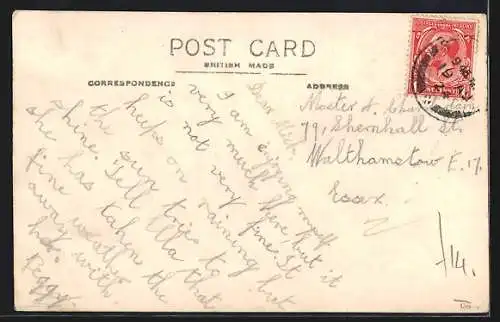 POST CARD
BRITISH MADE
CORRESPONDENCE
ADDRESS
Dear Alick,
I am enjoying myself
very much here, but it
is not very fine. It
keeps on raining but
the sun tries to
shine. Tell Ella that
she has taken the
fine weather
away with
her.
Peggy.
Master A.
79, Shernhall St.
Walthamstow E.17.
Essex.
£14.